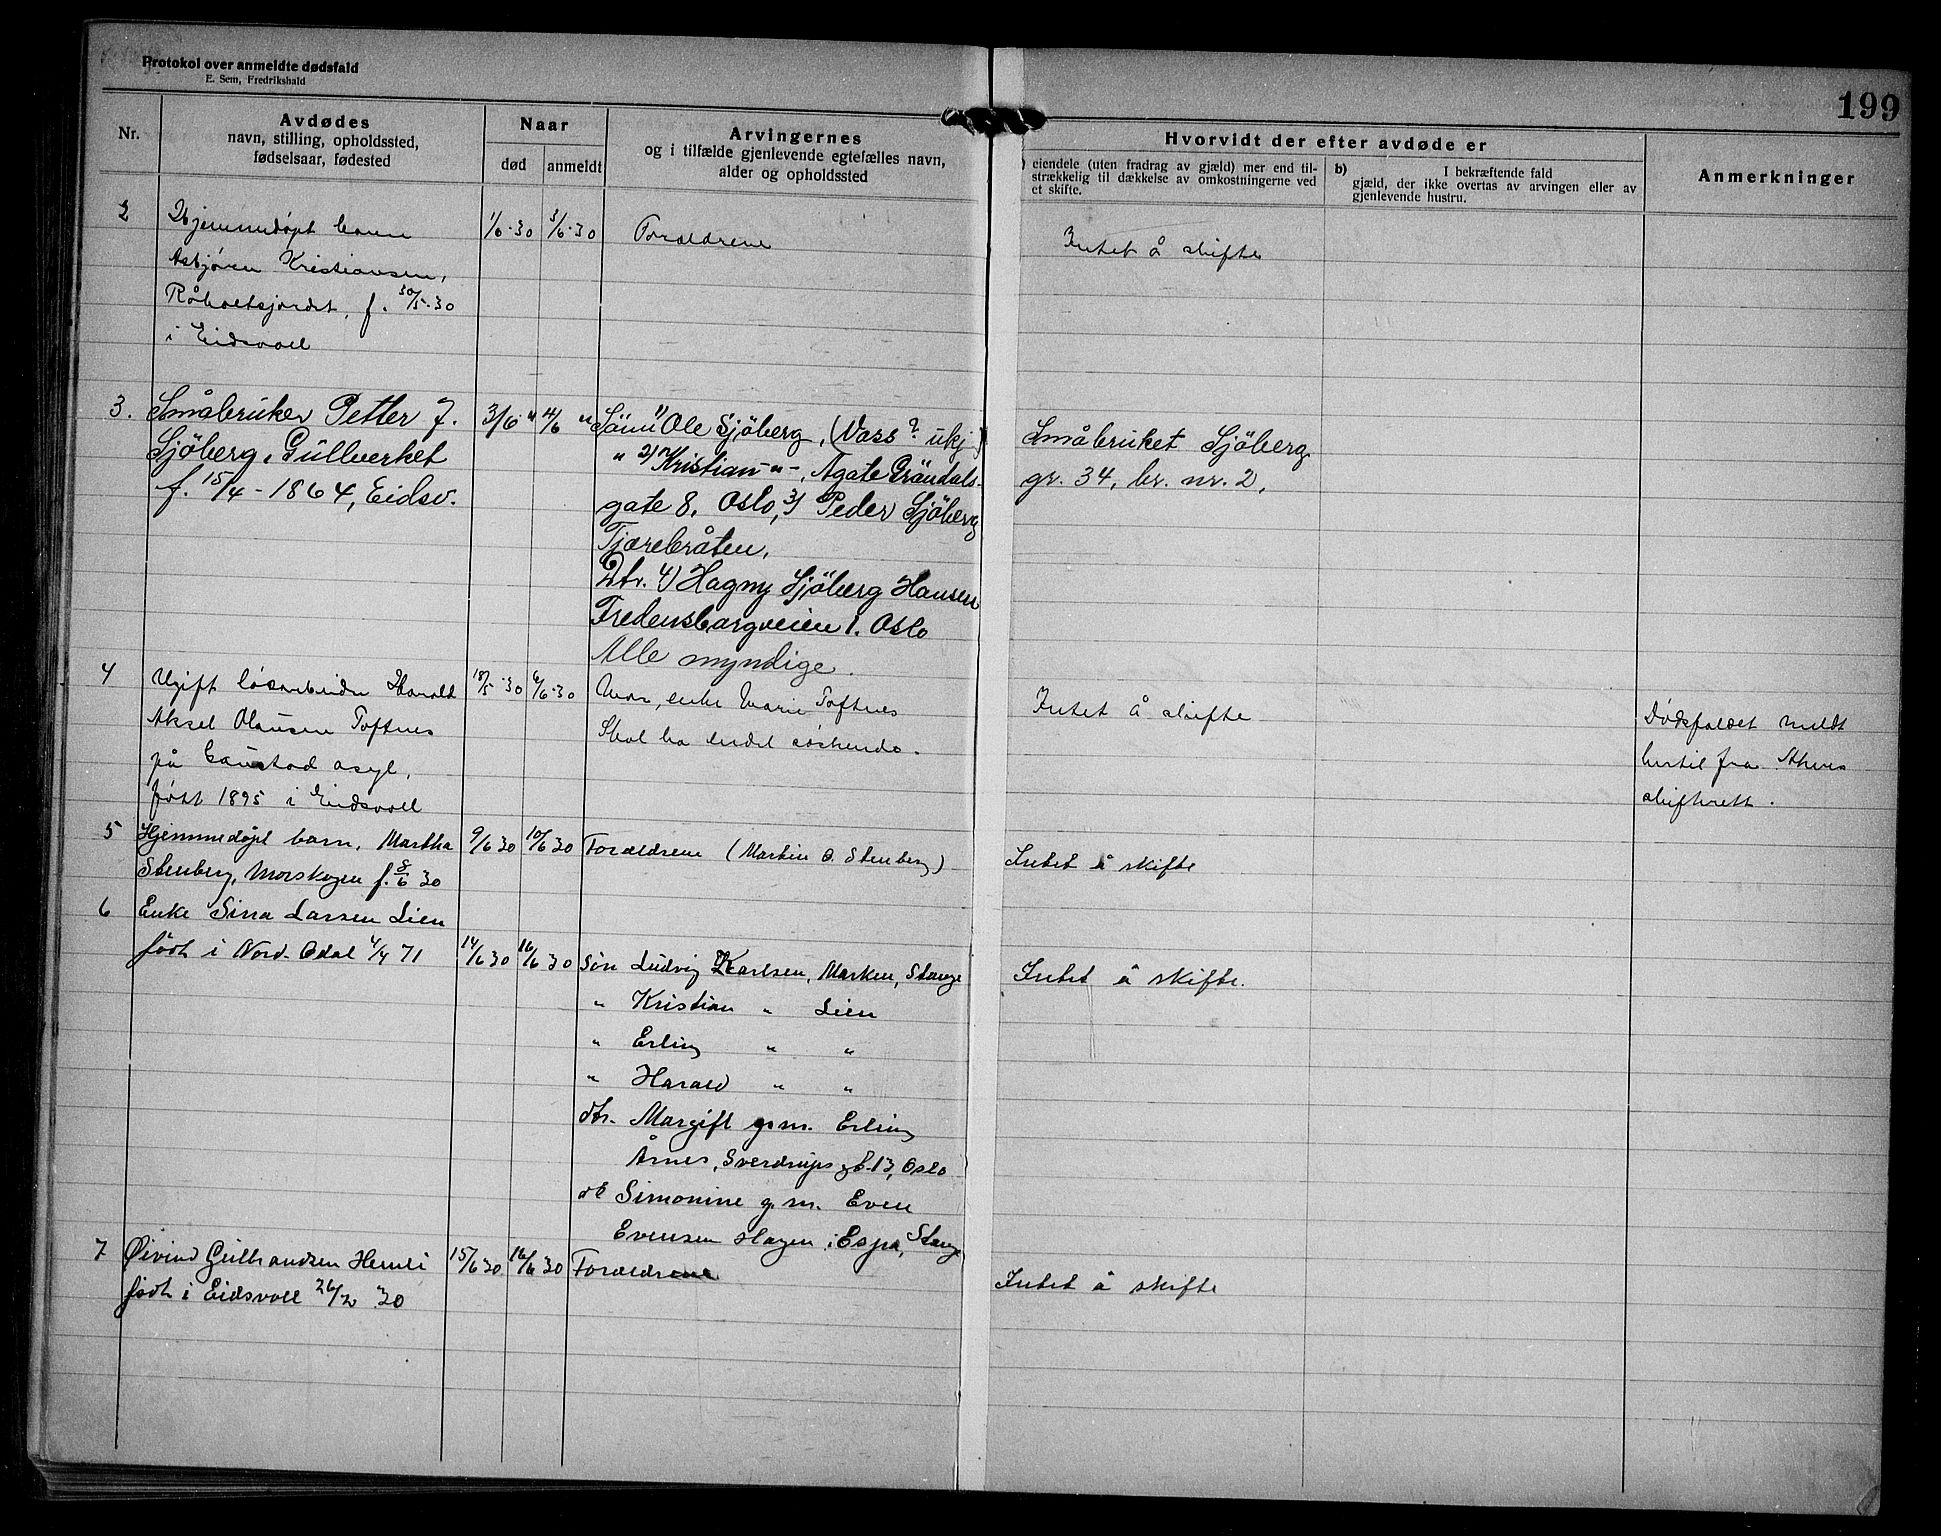 Protokol over anmeldte dødsfald
E. Sem, Fredrikshald
199
Nr.
Avdødes
navn, stilling, opholdssted,
fødselsaar, fødested
Naar
død
anmeldt
Arvingernes
og i tilfælde gjenlevende egtefælles navn,
alder og opholdssted
Hvorvidt der efter avdøde er
eiendele (uten fradrag av gjæld) mer end til-
strækkelig til dækkelse av omkostningerne ved
et skifte.
b) I bekræftende fald
gjæld, der ikke overtas av arvingen eller av
gjenlevende hustru.
Anmerkninger
2 Hjemmedøpt barn 1/6-30 3/6-30 Forældrene Intet å skifte
Asbjørn Kristiansen,
Råholtsjordet, f. 30/5-30
i Eidsvoll
3. Småbruker Petter J. 3/6 " 4/6 " Sönn 1) Ole Sjöberg, (Vass? ukj.) Småbruket Sjöberg
Sjöberg, Gullverket " 2) Kristian -"-, Agate Gröndals- gr. 34, br. nr. 2,
f. 15/4-1864, Eidsv. gate 8, Oslo, 3) Peder Sjöberg
Tjærebråten,
Dtr. 4) Hagny Sjöberg Hansen
Fredensborgveien 1. Oslo
Alle myndige.
4 Ugift løsarbeider Harald 18/5-30 6/6-30 Mor, enke Marie Toftnes Intet å skifte Dødsfaldet meldt
Aksel Olausen Toftnes Skal ha endel søskende. hertil fra Akers
på Gaustad asyl, skifterett.
født 1895 i Eidsvoll
5 Hjemmedøpt barn, Martha 9/6 30 10/6 30 Forældrene (Martin O. Stenberg) Intet å skifte
Stenberg, Morskogen f. 8/6 30
6 Enke Sina Larsen Lien
født i Nord-Odal 4/4 71 14/6 30 16/6 30 Søn Ludvig Karlsen, Marken, Stange Intet å skifte.
" Kristian " Lien
" Erling " "
" Harald " "
dtr. Margit g.m. Erling
Årnes, Sverdrups gt. 13, Oslo
dt Simonine g.m. Even
Evensen Hagen i Espa, Stange
7 Øivind Gulbrandsen Hemli 15/6 30 16/6 30 Forældrene Intet å skifte
født i Eidsvoll 26/2 30